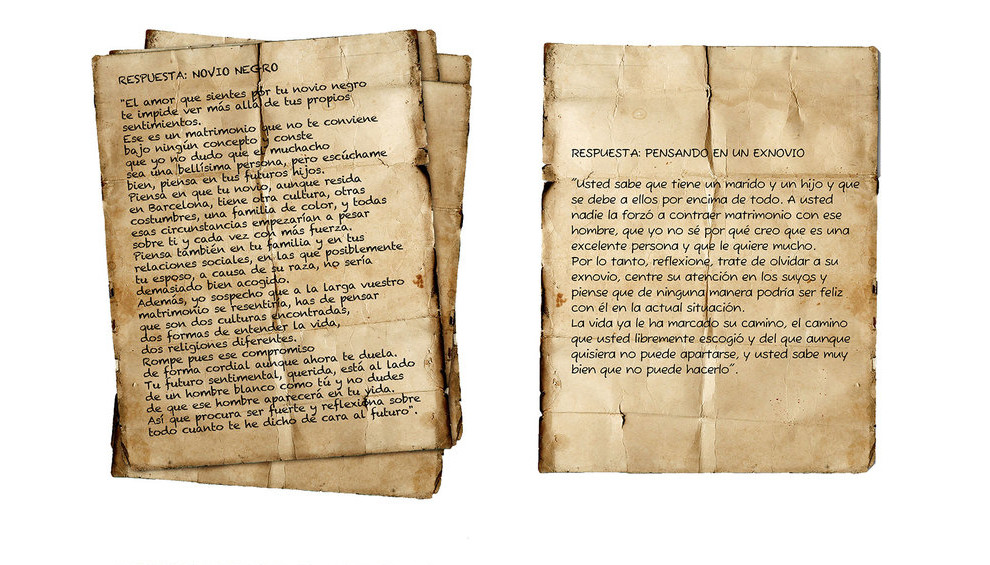 RESPUESTA: NOVIO NEGRO
"El amor que sientes por tu novio negro
te impide ver más allá de tus propios
sentimientos.
Ese es un matrimonio que no te conviene
bajo ningún concepto y conste
que yo no dudo que el muchacho
sea una bellísima persona, pero escúchame
bien, piensa en tus futuros hijos.
Piensa en que tu novio, aunque resida
en Barcelona, tiene otra cultura, otras
costumbres, una familia de color, y todas
esas circunstancias empezarían a pesar
sobre ti y cada vez con más fuerza.
Piensa también en tu familia y en tus
relaciones sociales, en las que posiblemente
tu esposo, a causa de su raza, no sería
demasiado bien acogido.
Además, yo sospecho que a la larga vuestro
matrimonio se resentiría, has de pensar
que son dos culturas encontradas,
dos formas de entender la vida,
dos religiones diferentes.
Rompe pues ese compromiso
de forma cordial aunque ahora te duela.
Tu futuro sentimental, querida, está al lado
de un hombre blanco como tú y no dudes
de que ese hombre aparecerá en tu vida.
Así que procura ser fuerte y reflexiona sobre
todo cuanto te he dicho de cara al futuro".
RESPUESTA: PENSANDO EN UN EXNOVIO
"Usted sabe que tiene un marido y un hijo y que
se debe a ellos por encima de todo. A usted
nadie la forzó a contraer matrimonio con ese
hombre, que yo no sé por qué creo que es una
excelente persona y que le quiere mucho.
Por lo tanto, reflexione, trate de olvidar a su
exnovio, centre su atención en los suyos y
piense que de ninguna manera podría ser feliz
con él en la actual situación.
La vida ya le ha marcado su camino, el camino
que usted libremente escogió y del que aunque
quisiera no puede apartarse, y usted sabe muy
bien que no puede hacerlo".